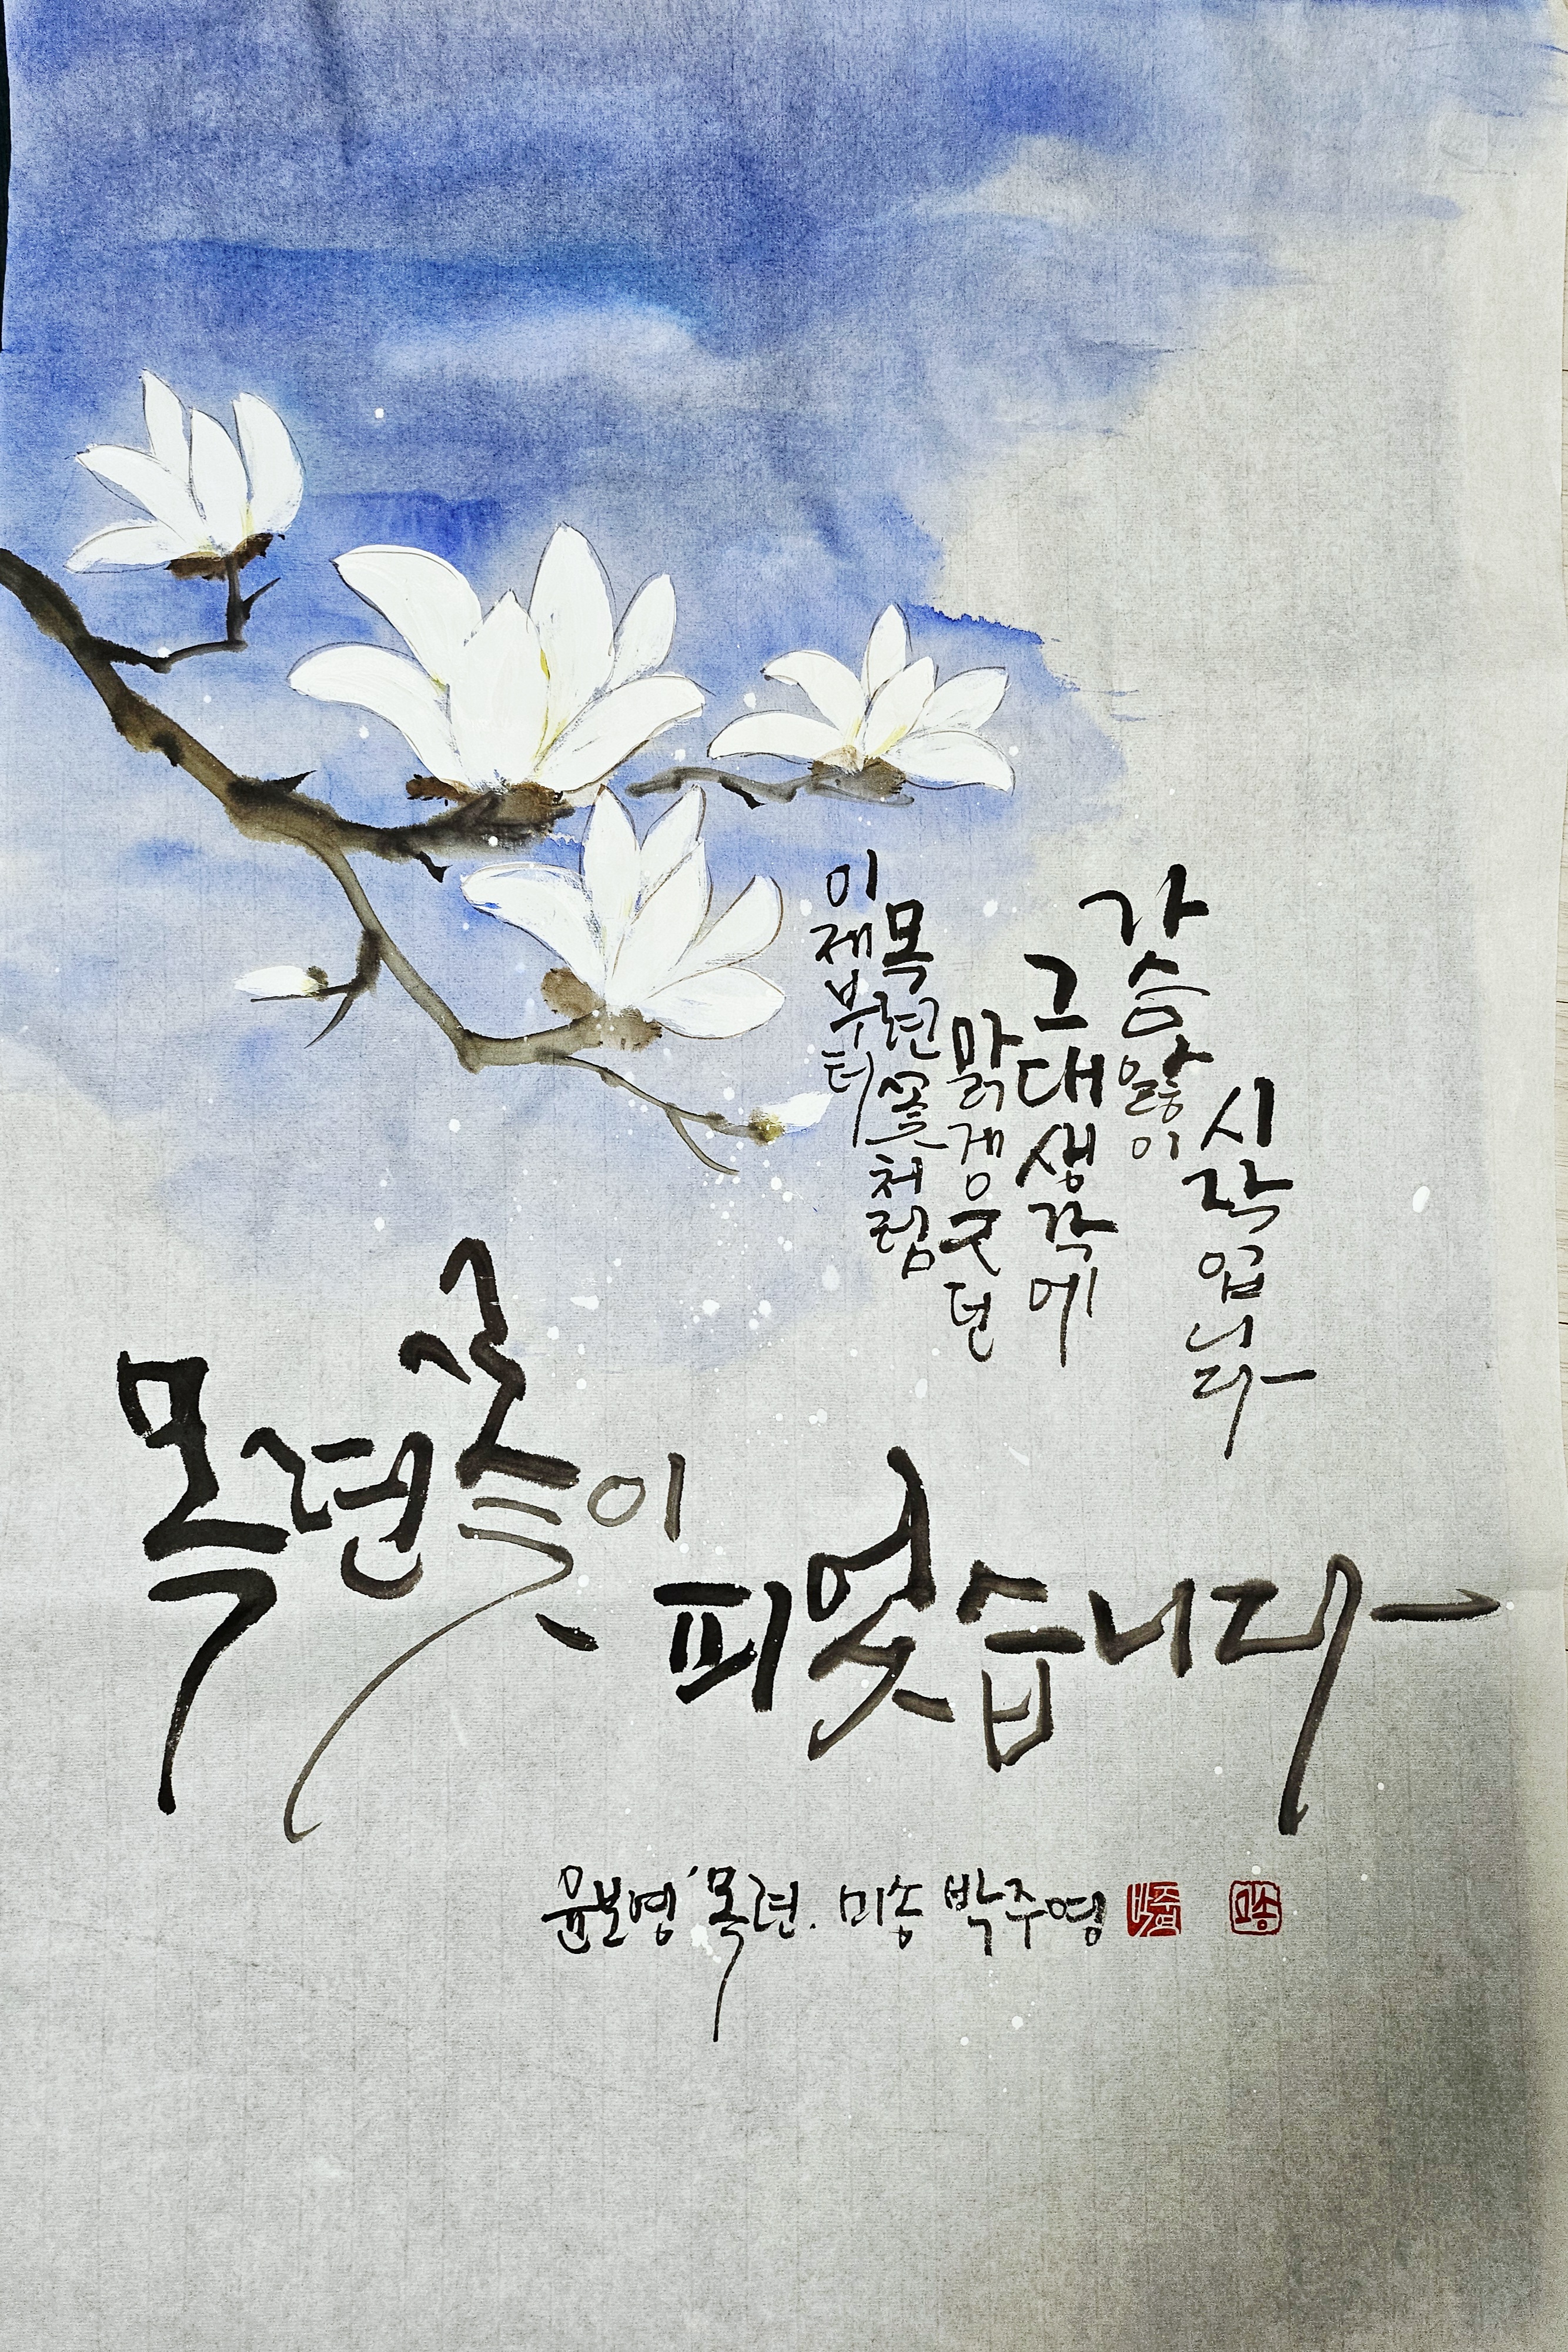 목련꽃이
피었습니다
이제부터
목련꽃처럼
맑게 웃던
그대 생각에
가슴앓이
시작입니다
윤보영 '목련. 미송 박주영